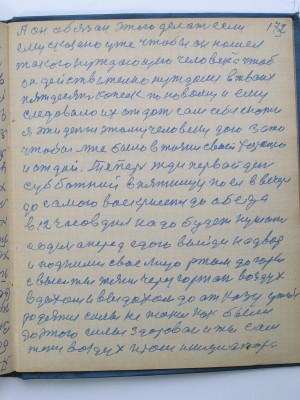 А он обязан этого делать если
ему сказано уже чтобы он нашел
такого нуждающего человека чтоб
он действительно нуждался в твоих
пятьдесят копеек по новому и ему
следовало их отдать сам себе скажи
я эти деньги этому человеку даю за то
чтобы мне было в жизни своей хорошо
и отдай. Теперь жди первой ден
субботний в пятницу поел в вечери
до самого воскресенья до обеда
в 12 часов дня надо будет кушать
а один перед едою выйди на двор
и подними свое лицо ртом до горы
с высоты тяни через гортань воздух
вдохом и выдохом до отказу
родятся силы не такие как были
до этого силы здоровая и ты сам
тяни воздух и проси инициатора
172